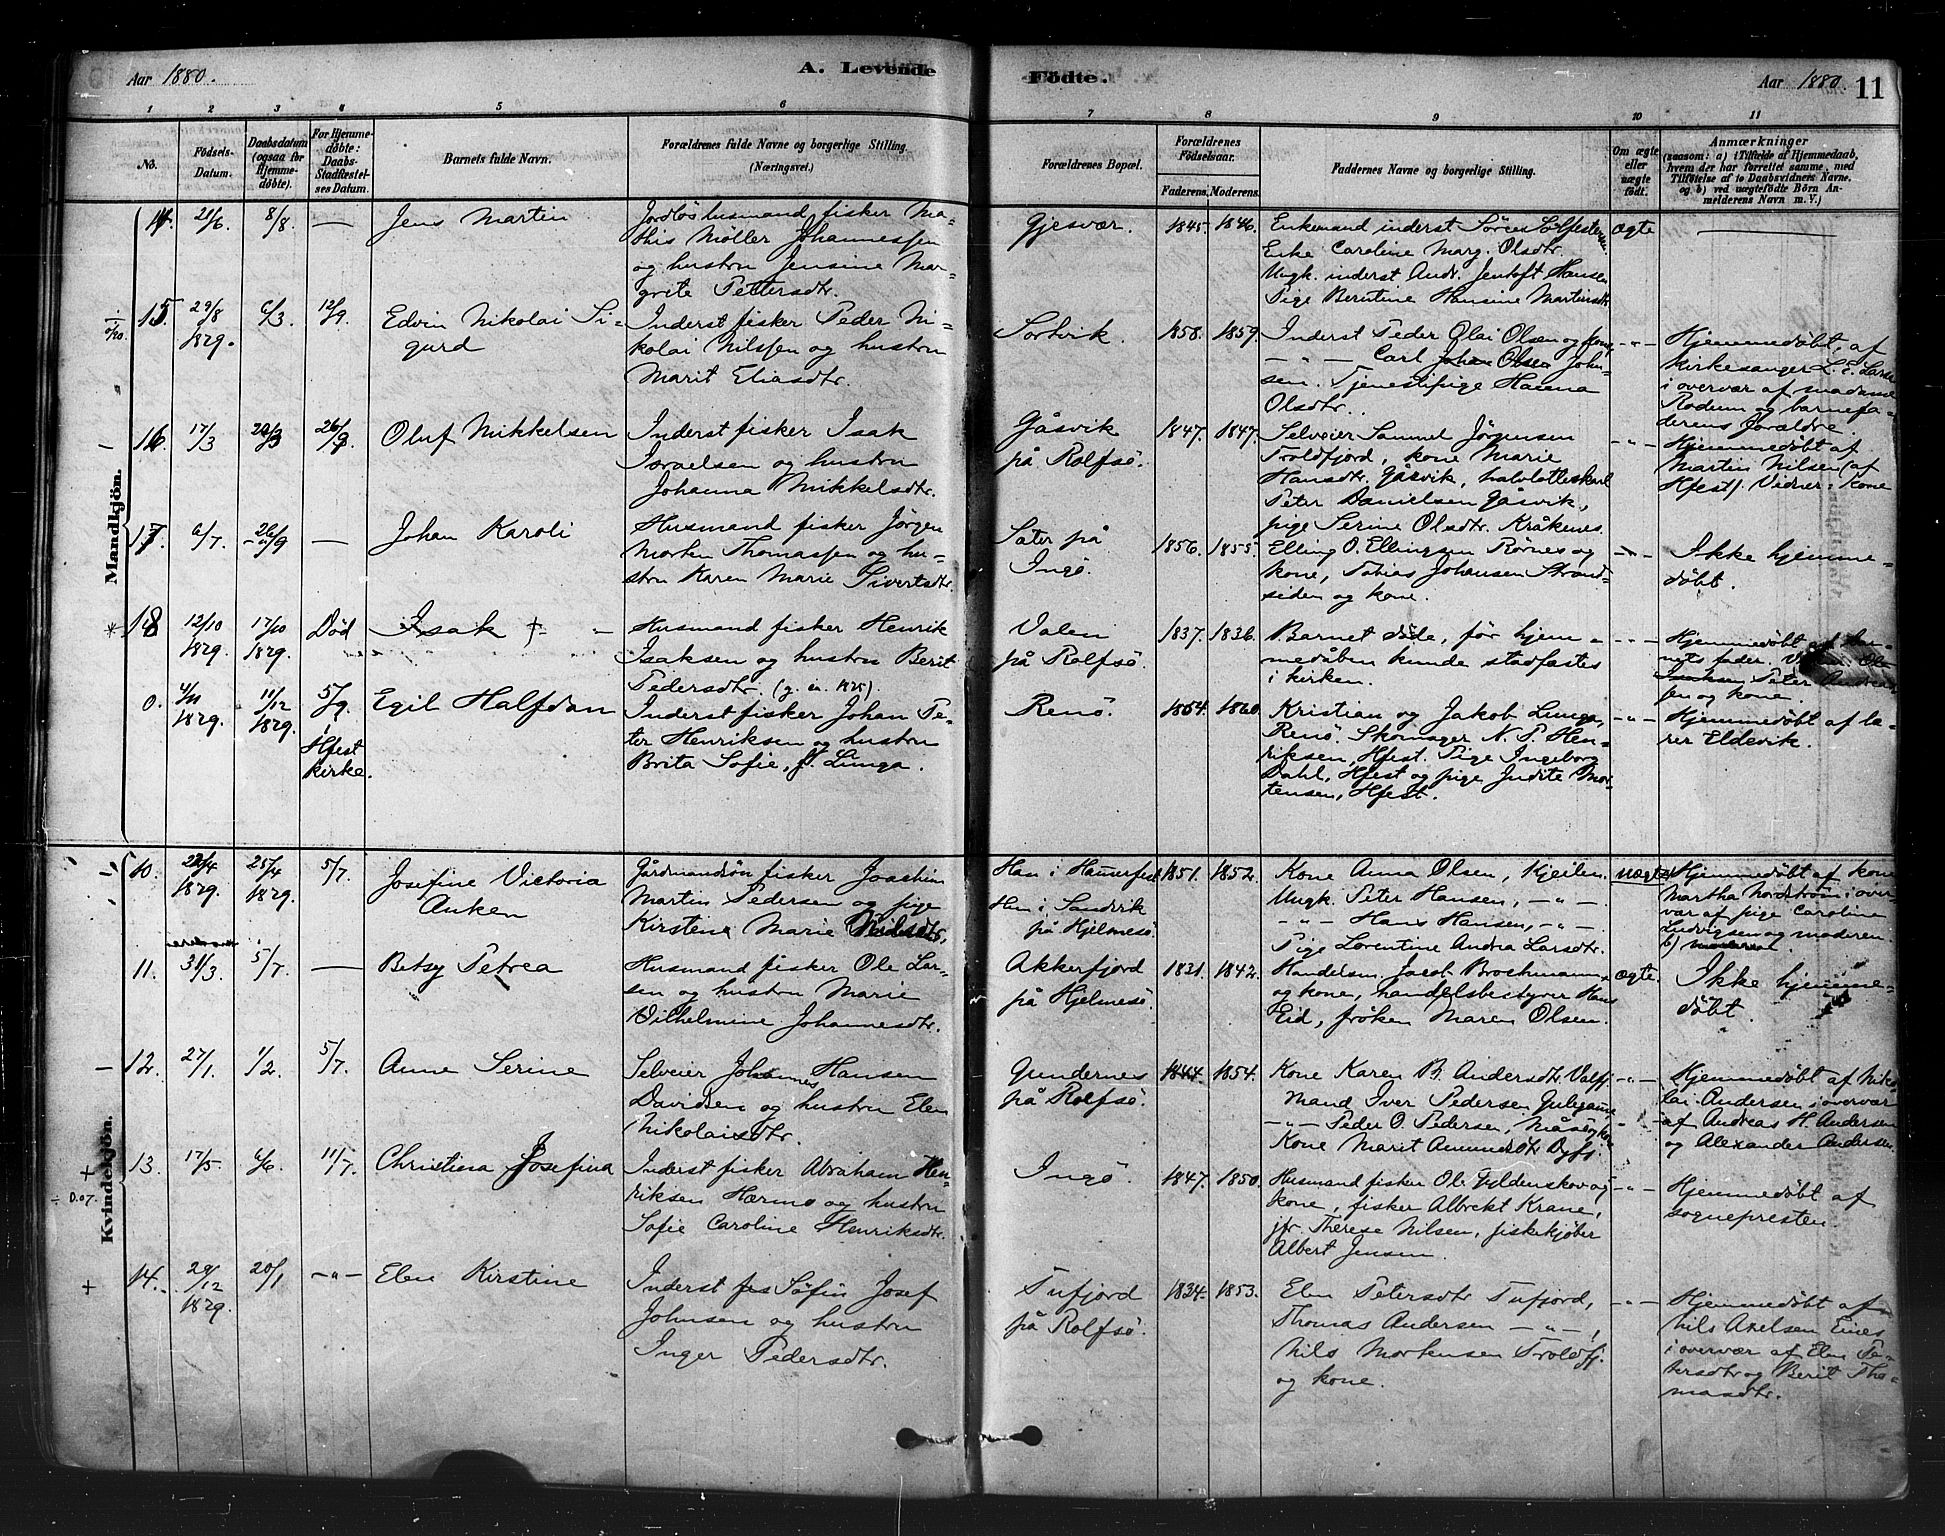 Aar 1880.
A. Levende Födte.
Aar 1880. 11
1 2 3 4 5 6 7 8 9 10 11
No.
Födsels-Datum.
Daabsdatum (ogsaa for Hjemmedöbte).
For Hjemmedöbte: Daabs-Stadfæstelses Datum.
Barnets fulde Navn.
Forældrenes fulde Navne og borgerlige Stilling. (Næringsvei.)
Forældrenes Bopæl.
Forældrenes Födselsaar.
Faderens. Moderens.
Faddernes Navne og borgerlige Stilling.
Om ægte eller uægte födt.
Anmærkninger
(saasom: a) i Tilfælde af Hjemmedaab, hvem der har forrettet samme, med Tilföielse af to Daabsvidners Navne, og b) ved uægtefödte Börn Anmelderens Navn m. V.)
Mandkjön.
14. 21/6. 8/8. — Jens Martin
Jordløs husmand fisker Ma-
this Møller Johannessen
og hustru Jensine Mar-
grete Pettersdtr.
Gjesvær. 1845. 1846.
Enkemand inderst Sören
Enke Caroline Marg. Olsdtr.
Ungk. inderst Andr. Jentoft Hansen
Pige Berntine Hansine Martinsdtr
ægte
15. 29/8 1879. 6/3. 12/9. Edvin Nikolai Si-
gurd
Inderst fisker Peder Ni-
kolai Nilssen og hustru
Marit Eliasdtr.
Sortvik. 1858. 1859.
Inderst Peder Olai Olsen og kone,
— " — Carl Johan Olsen John-
sen. Tjenestepige Hanna
Olsdtr.
— " —
Hjemmedøbt af
kirkesanger L. E. Larse
i overvær af madame
Rodum og barnefa-
derens forældre.
16. 17/3 26/9 Oluf Mikkelsen
Inderst fisker Isak
Israelsen og hustru
Johanna Mikkelsdtr.
Gåsvik
på Rolfsö.
1847. 1847.
Selveier Samuel Jörgensen
Troldfjord, kone Marie
Hansdtr. Gåsvik, halvlotteskarl
Peter Danielsen Gåsvik,
pige Serine Olsdtr. Kråkenes.
— " —
Hjemmedøbt af
Martin Nilsen (af
Hfest). Vidner: Kone
17. 6/7. 26/9 — Johan Karoli
Husmand fisker Jörgen
Morten Thomassen og hu-
stru Karen Marie Sivertsdtr.
Säter på
Ingö.
1856. 1855.
Elling O. Ellingsen Rörnes og
kone, Tobias Johansen Strand-
siden og kone.
— " —
Ikke hjemme-
döbt.
18 12/10 1879. 17/10 1879. Död Isak †
Husmand fisker Henrik
Isaksen og hustru Berit
Pedersdtr. (g. m. 1875).
Valen
på Rolfsö.
1837. 1836.
Barnet döde, för hjem-
medåben kunde stadfæstes
i kirken.
— " —
Hjemmedöbt af bar-
nets fader.
Peter Andreas-
sen og kone
0. 4/11 1879. 11/12 1879. 5/9. i Hfest kirke. Egil Halfdan
Inderst fisker Johan Pe-
ter Henriksen og hustru
Brita Sofie, f. Lunga.
Renö. 1854. 1860.
Kristian og Jakob Lunga,
Renö. Skomager N. P. Hen-
riksen, Hfest. Pige Ingeborg
Dahl, Hfest og pige Judite Mor-
tensen, Hfest.
— " —
Hjemmedöbt af læ-
rer Eldevik.
Kvindekjön.
10. 22/4 1879. 25/4 1879. 5/7. Josefine Victoria
Anken
Gårdmandsön fisker Joachim
Martin Pedersen og pige
Kirstine Marie Nilsdtr.
Han i Hammerfest
Hun i Sandvik
på Hjelmesö.
1851. 1852.
Kone Anna Olsen, Kjeilen.
Ungk. Peter Hansen, — " —
— " — Hans Hansen, — " —
Pige Lorentine Andrea Larsdtr.
uægte
Hjemmedöbt af kone
Martha Nordstrøm i over-
vær af pige Caroline
Ludvigsen og moderen.
b) moderen.
11. 31/3. 5/7. — Betsy Petrea
Husmand fisker Ole Lar-
sen og hustru Marie
Vilhelmine Johannesdtr.
Akkerfjord
på Hjelmesö.
1831. 1842.
Handelsm. Jacob Brochmann
og kone, handelsbestyrer Hans
Eid, frøken Maren Olsen.
ægte.
Ikke hjemme-
döbt.
12. 27/1. 1/2. 5/7. Anne Serine
Selveier Johannes Hansen
Davidsen og hustru Elen
Nikolaisdtr.
Gundernes
på Rolfsö.
1844. 1854.
Kone Karen B. Andersdtr. Valfj.
Mand Iver Pedersen
— " — Peder O. Pedersen,
Kone Marit Ammundsdtr.
— " —
Hjemmedöbt af Niko-
lai Andersen i overvær
af Andreas H. Andersen
og Alexander Andersen.
÷ D.07.
13. 17/5. 6/6. 11/7. Christina Josefina
Inderst fisker Abraham Hen-
riksen Hermo og hustru
Sofie Caroline Henriksdtr.
Ingö. 1847. 1850.
Husmand fisker Ole Gyldenskov og
kone, fisker Albrekt Krane,
jfr Therese Nilsen, fiskekjöber
Albert Jensen.
— " —
Hjemmedöbt af
sognepresten
14. 29/12 1879. 20/1 — " — Elen Kirstine
Inderst Söfin Josef
Johnsen og hustru
Inger Pedersdtr.
Tufjord
på Rolfsö.
1824. 1853.
Elen Petersdtr Tufjord,
Thomas Andersen — " —,
Nils Mortensen Troldfj.
og kone.
— " —
Hjemmedöbt af
Nils Axelsen Eines
i overvær af Elen Pe-
tersdtr og Berit Tho-
masdtr.